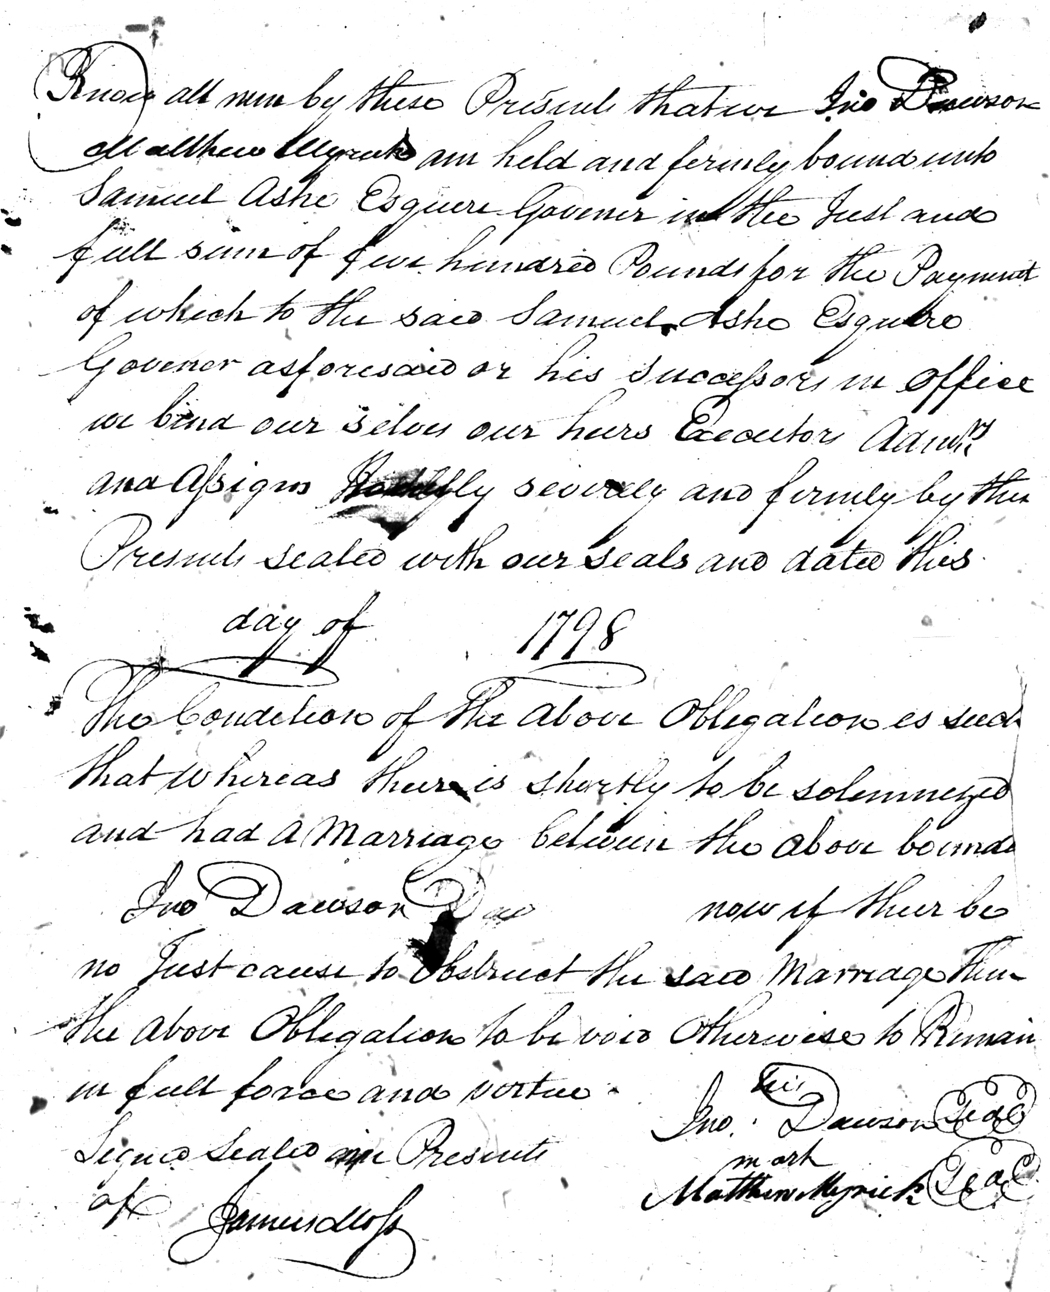 Know all men by these Presents that we Jno Dawson
Matthew Myrick am held and firmly bound unto
Samuel Ashe Esquere Govener in the Just and
full sum of five hundred Pounds for the Payment
of which to the said Samuel Ashe Esquire
Govener asforesaid or his successors in office
we bind our selves our heirs Executors Admrs
and Assigns severely and firmly by these
Presents sealed with our seals and dated this
day of 1798
The Condition of the above Obligation is such
that whereas there is shortly to be solemnezed
and had a Marriage between the above bound
Jno Dawson Daw now if their be
no Just cause to obstruct the said Marriage Then
the above Obligation to be void Otherwise to Remain
in full force and vertue
Signed Sealed in Presents
of
James Moss
his
Jno. Dawson Seal
mark
Matthew Myrick Seal